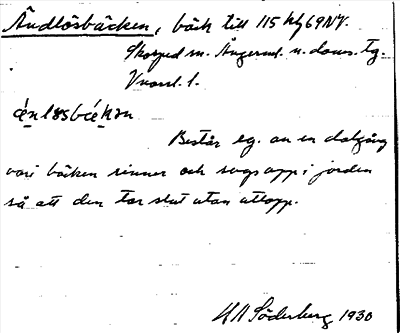 Ändlösbäcken, bäck till 115 Hg 69 NV.
Skorped sn. Ångerml. n. doms. tg.
Vnorrl. l.
Består eg. av en dalgång
vari bäcken rinner och sugs upp i jorden
så att den tar slut utan utlopp.
HA Söderberg 1930